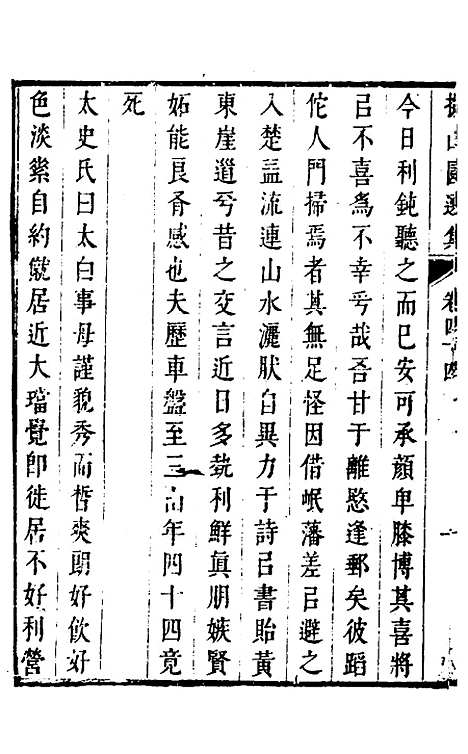 擬山園選集 卷四十四
今日利鈍聽之而已安可承顏卑膝博其喜將
㠯不喜爲不幸兮哉吾甘于離愍逢郵矣彼蹈
佗人門掃焉者其無足怪因借岷藩差㠯避之
入楚益流連山水灑狀自異力于詩㠯書貽黃
東崖遣兮昔之交言近日多兟利鮮眞朋嫉賢
妬能良胥感也夫歷車盤至三山年四十四竟
死
太史氏曰太白事母謹貌秀而皙爽朗好飲好
色淡縈自約僦居近大璫覺卽徙居不好利營